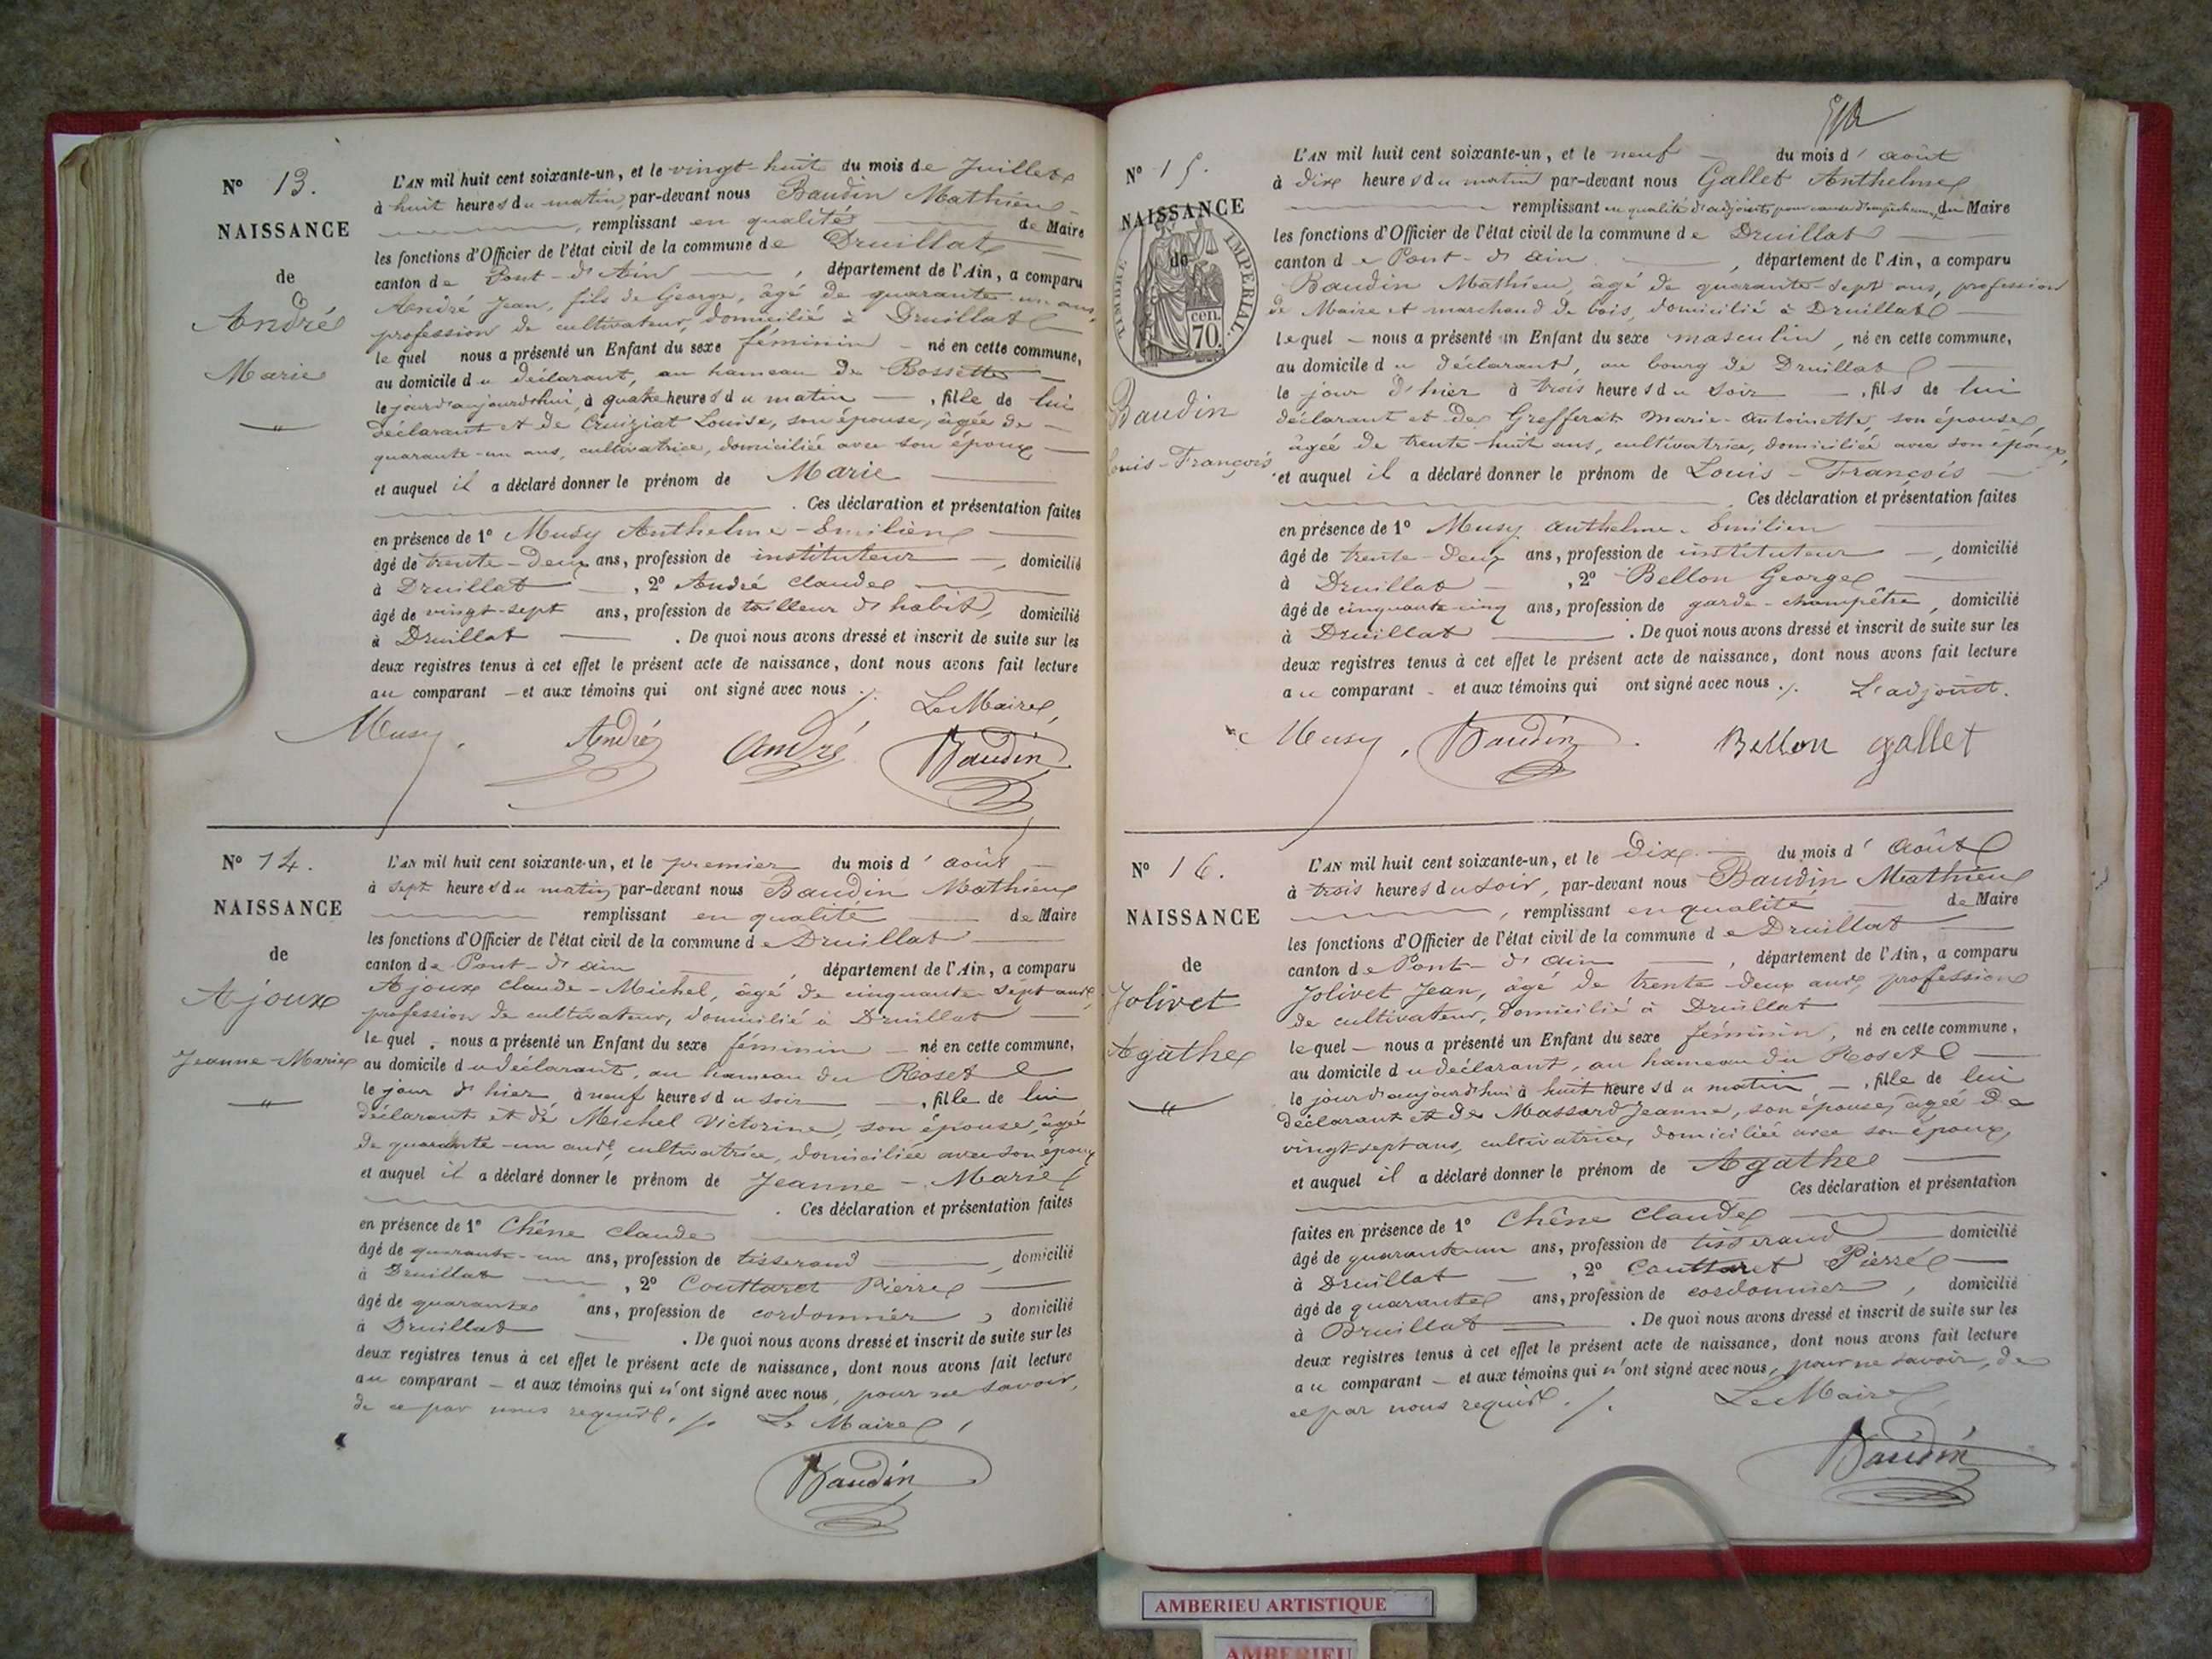 N° 13.
NAISSANCE
de
André
Marie
L'AN mil huit cent soixante-un, et le vingt-huit du mois de Juillet
à huit heures du matin, par-devant nous Baudin Mathieu
, remplissant en qualité de Maire
les fonctions d'Officier de l'état civil de la commune de Druillat
canton de Pont-d'Ain , département de l'Ain, a comparu
André Jean, fils de George, âgé de quarante-un ans,
profession de cultivateur, domicilié à Druillat
lequel nous a présenté un Enfant du sexe féminin né en cette commune,
au domicile du déclarant, au hameau de Rossettes
le jour d'aujourd'hui, à quatre heures du matin , fille de lui
déclarant et de Cruiziat Louise, son épouse, âgée de
quarante-un ans, cultivatrice, domiciliée avec son époux
et auquel il a déclaré donner le prénom de Marie
. Ces déclaration et présentation faites
en présence de 1° Musy Anthelme-Emilien
âgé de trente-deux ans, profession de instituteur , domicilié
à Druillat , 2° André Claude
âgé de vingt-sept ans, profession de tailleur d'habit, domicilié
à Druillat . De quoi nous avons dressé et inscrit de suite sur les
deux registres tenus à cet effet le présent acte de naissance, dont nous avons fait lecture
au comparant – et aux témoins qui ont signé avec nous ./.
Le Maire,
Musy. André André Baudin
N° 14.
NAISSANCE
de
Ajoux
Jeanne-Marie
L'AN mil huit cent soixante-un, et le premier du mois d'août
à sept heures du matin, par-devant nous Baudin Mathieu
remplissant en qualité de Maire
les fonctions d'Officier de l'état civil de la commune de Druillat
canton de Pont-d'ain département de l'Ain, a comparu
Ajoux Claude-Michel, âgé de cinquante-sept ans,
profession de cultivateur, domicilié à Druillat
lequel nous a présenté un Enfant du sexe féminin né en cette commune,
au domicile du déclarant, au hameau du Roset
le jour d'hier, à neuf heures du soir , fille de lui
déclarant et de Michel Victorine, son épouse, âgée
de quarante-un ans, cultivatrice, domiciliée avec son époux
et auquel il a déclaré donner le prénom de Jeanne-Marie
. Ces déclaration et présentation faites
en présence de 1° Chêne Claude
âgé de quarante-un ans, profession de tisserand , domicilié
à Druillat , 2° Couttaret Pierre
âgé de quarante ans, profession de cordonnier , domicilié
à Druillat . De quoi nous avons dressé et inscrit de suite sur les
deux registres tenus à cet effet le présent acte de naissance, dont nous avons fait lecture
au comparant – et aux témoins qui n'ont signé avec nous, pour ne savoir,
de ce par nous requis. /. Le Maire,
Baudin
N° 15.
NAISSANCE
de
TIMBRE IMPERIAL.
cen.
70.
Baudin
Louis-François
L'AN mil huit cent soixante-un, et le neuf du mois d'août
à dix heures du matin par-devant nous Gallet Anthelme
remplissant en qualité d'adjoint, pour cause d'empêchement du Maire
les fonctions d'Officier de l'état civil de la commune de Druillat
canton de Pont-d'ain , département de l'Ain, a comparu
Baudin Mathieu, âgé de quarante-sept ans, profession
de Maire et marchand de bois, domicilié à Druillat
lequel – nous a présenté un Enfant du sexe masculin, né en cette commune,
au domicile du déclarant, au bourg de Druillat
le jour d'hier à trois heures du soir , fils de lui
déclarant et de Grefferat Marie-Antoinette, son épouse,
âgée de trente-huit ans, cultivatrice, domiciliée avec son époux,
et auquel il a déclaré donner le prénom de Louis-François
. Ces déclaration et présentation faites
en présence de 1° Musy anthelme-Emilien
âgé de trente-deux ans, profession de instituteur , domicilié
à Druillat , 2° Bellon George
âgé de cinquante-cinq ans, profession de garde-champêtre, domicilié
à Druillat . De quoi nous avons dressé et inscrit de suite sur les
deux registres tenus à cet effet le présent acte de naissance, dont nous avons fait lecture
au comparant - et aux témoins qui ont signé avec nous ./. L'adjoint.
Musy, Baudin. Bellon gallet
N° 16.
NAISSANCE
de
Jolivet
Agathe
L'AN mil huit cent soixante-un, et le Dix du mois d'Août
à trois heures du soir, par-devant nous Baudin Mathieu
, remplissant en qualité de Maire
les fonctions d'Officier de l'état civil de la commune de Druillat
canton de Pont-d'ain , département de l'Ain, a comparu
Jolivet Jean, âgé de trente-deux ans, profession
de cultivateur, domicilié à Druillat
lequel – nous a présenté un Enfant du sexe féminin, né en cette commune,
au domicile du déclarant, au hameau du Roset
le jour d'aujourd'hui à huit heures du matin , fille de lui
déclarant et de Massard Jeanne, son épouse, âgée de
vingt-sept ans, cultivatrice, domiciliée avec son époux,
et auquel il a déclaré donner le prénom de Agathe
Ces déclaration et présentation
faites en présence de 1° Chêne Claude
âgé de quarante-un ans, profession de tisserand domicilié
à Druillat , 2° Couttaret Pierre
âgé de quarante ans, profession de cordonnier, domicilié
à Druillat . De quoi nous avons dressé et inscrit de suite sur les
deux registres tenus à cet effet le présent acte de naissance, dont nous avons fait lecture
au comparant – et aux témoins qui n'ont signé avec nous, pour ne savoir, de
ce par nous requis ./. Le Maire,
Baudin
AMBERIEU ARTISTIQUE
AMBERIEU